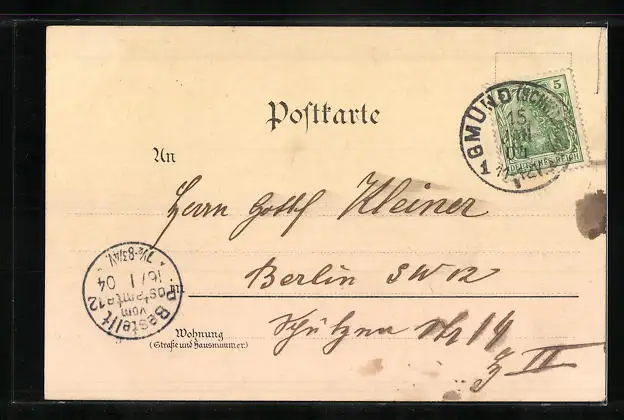 Postkarte
5
DEUTSCHES REICH
1 GMÜND (SCHW.)
15
JAN
04
An
Herrn Gottl Kleiner
in Berlin SW 12
Wohnung
(Straße und Hausnummer)
Schützen Str 14
II
Bestellt
vom
Postamte 12
16/1 04
7½-8¾V.